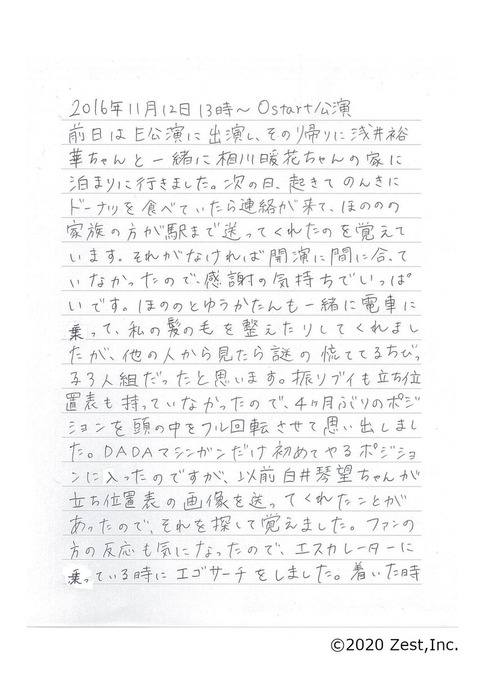 2016年11月12日13時～ 0start公演
前日はE公演に出演し、その帰りに浅井裕
華ちゃんと一緒に相川暖花ちゃんの家に
泊まりに行きました。次の日、起きてのんきに
ドーナツを食べていたら連絡が来て、ほののの
家族の方が駅まで送ってくれたのを覚えて
います。それがなければ開演に間に合って
いなかったので、感謝の気持ちでいっぱ
いです。ほののとゆうかたんも一緒に電車に
乗って、私の髪の毛を整えたりしてくれまし
たが、他の人から見たら謎の慌ててるちびっ
子3人組だったと思います。振りブイも立ち位
置表も持っていなかったので、4ヶ月ぶりのポジ
ションを頭の中をフル回転させて思い出しまし
た。DADAマシンガンだけ初めてやるポジショ
ンに入ったのですが、以前白井琴望ちゃんが
立ち位置表の画像を送ってくれたことが
あったので、それを探して覚えました。ファンの
方の反応も気になったので、エスカレーターに
乗っている時にエゴサーチをしました。着いた時
©2020 Zest,Inc.